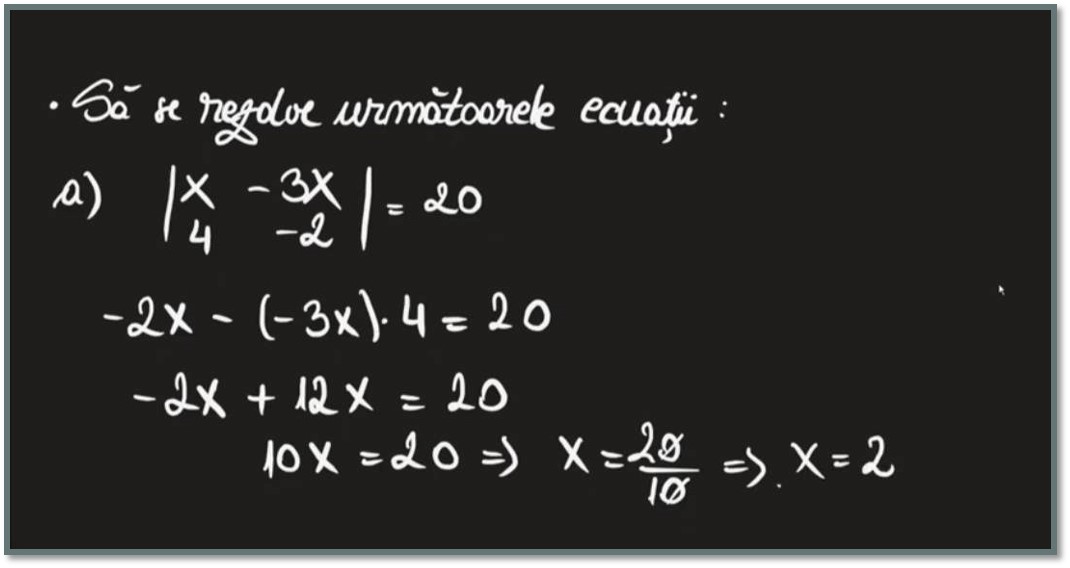 • Să se rezolve următoarele ecuații :
a) |x -3x| = 20
4 -2
-2x - (-3x)·4 = 20
-2x + 12x = 20
10x = 20 => x = 20/10 => x = 2